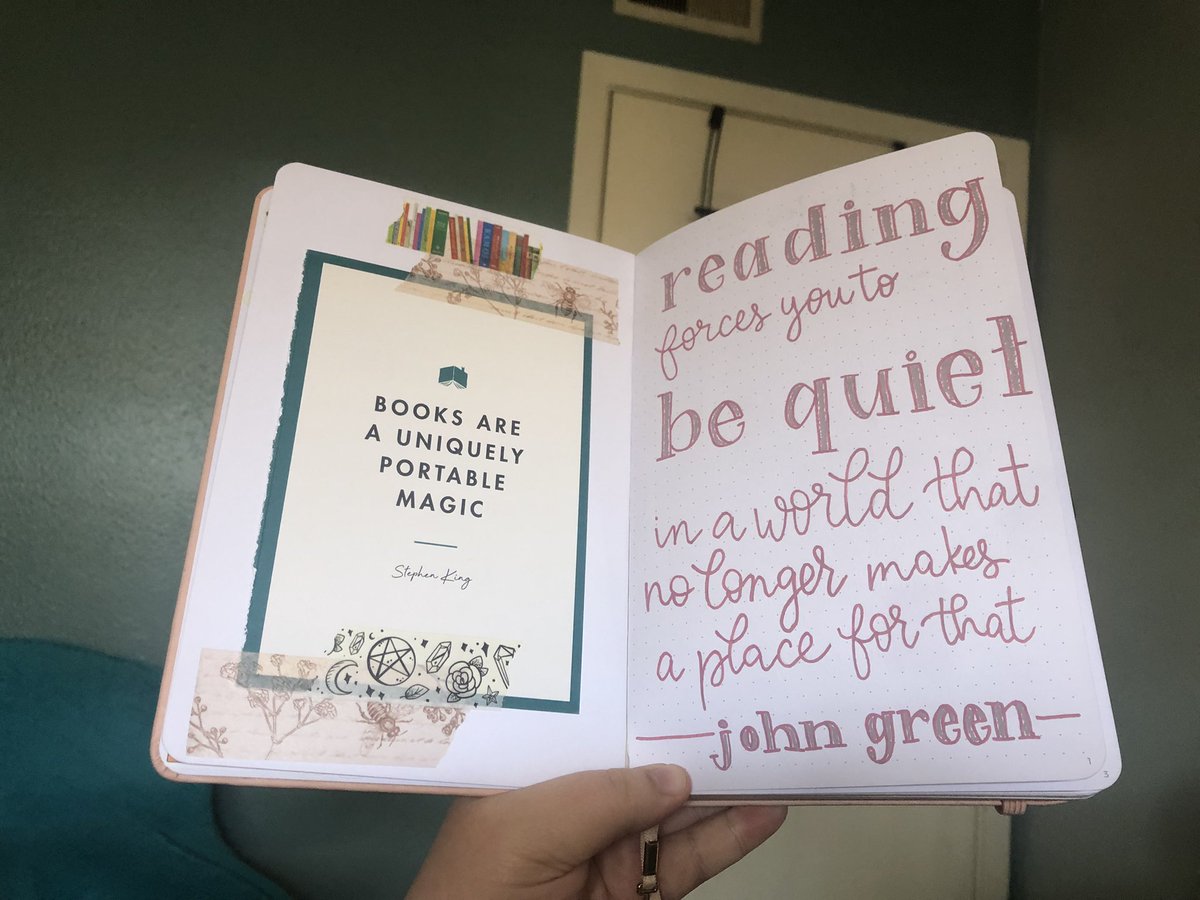 BOOKS ARE
A UNIQUELY
PORTABLE
MAGIC
Stephen King
reading
forces you to
be quiet
in a world that
no longer makes
a place for that
john green
1
3